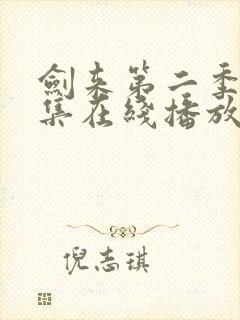 劍来第二季
集在綫播放
倪志琪